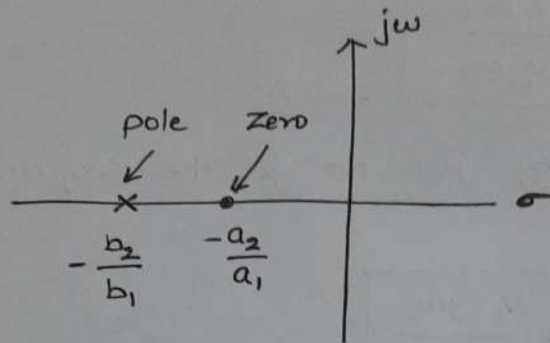 jω
pole
zero
σ
- b₂/b₁
- a₂/a₁